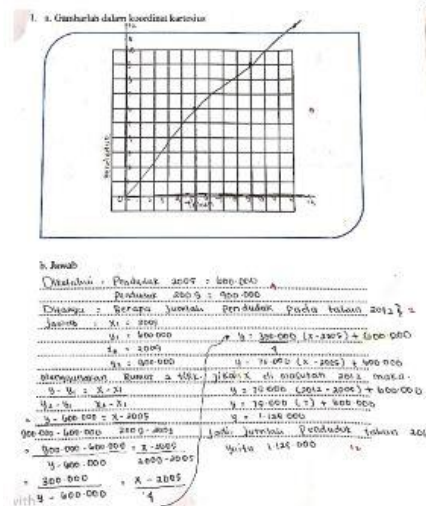 1. a. Gambarlah dalam koordinat kartesius
b. Jawab
Diketahui : Penduduk 2005 : 600.000
Penduduk 2009 : 900.000
Ditanya : Berapa Jumlah Penduduk pada tahun 2012?
Jawab : X1 = 2005
y1 = 600 000
= 2009
= 900.000
Menggunakan Rumus 2 titik
y - y1 = X - X1
y2 - y1 X2 - X1
= y - 600 000 = X - 2005
900 000 - 600 000 2009 - 2005
= 900 000 - 600 000 = X - 2005
y - 600 000 2009 - 2005
= 300 000 = X - 2005
y - 600 000 4
y = 300 000 (X - 2005) + 600 000
4
y = 75 000 (X - 2005) + 600 000
jika X di 2012 maka
y = 75 000 (2012 - 2005) + 600 000
y = 75 000 (7) + 600 000
y = 1.125 000
Jadi Jumlah Penduduk tahun 20
yaitu 1.125 000
with